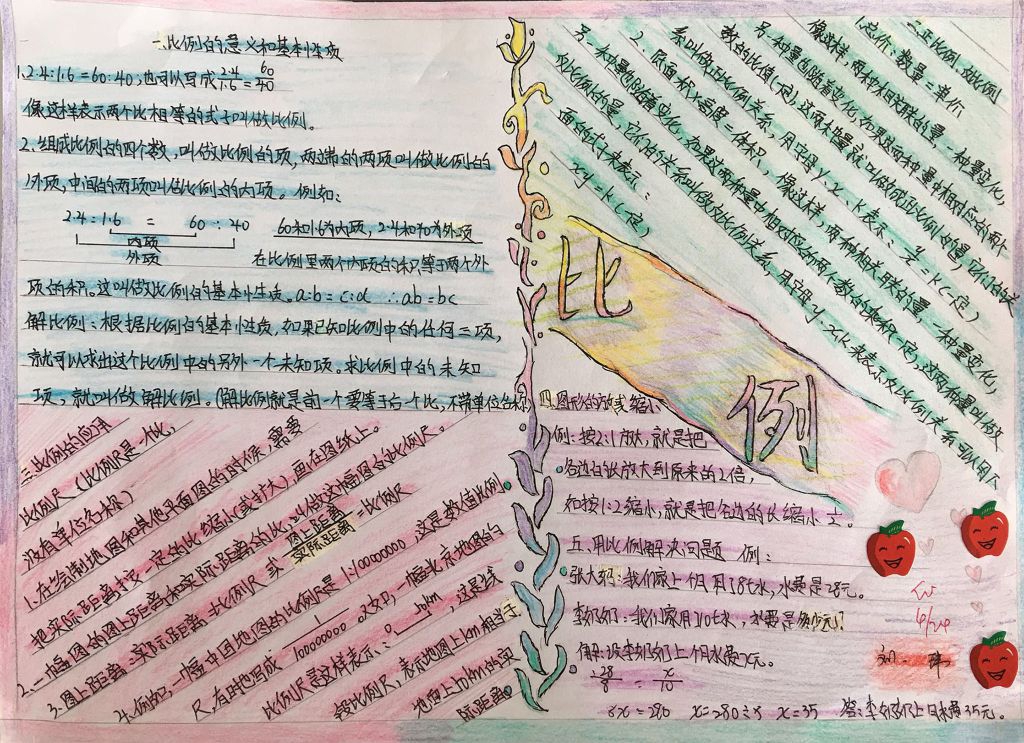 一.比例的意义和基本性质
1.2.4:1.6=60:40,也可以写成2.4/1.6=60/40
像这样表示两个比相等的式子叫做比例。
2.组成比例的四个数,叫做比例的项,两端的两项叫做比例的
外项,中间的两项叫做比例的内项。例如:
2.4:1.6 = 60:40 60和1.6为内项,2.4和40为外项
内项
外项
在比例里两个内项的积等于两个外
项的积。这叫做比例的基本性质。a:b=c:d ∴ab=bc
解比例:根据比例的基本性质,如果已知比例中的任何三项,
就可以求出这个比例中的另外一个未知项。求比例中的未知
项,就叫做解比例。(解比例就是前一个要等于后一个比,不带单位名称)
二.正比例,反比例
1.总价:数量=单价
像这样,两种相关联的量,一种量变化,
另一种量也随着变化,如果这两种量中相对应的两个
数的比值(一定),这两种量就叫做成正比例的量,它们的关
系叫做正比例关系。用字母y.x.k表示:y/x=k(一定)
2.底面积×高度=体积,像这样,两种相关联的量,一种量变化,
另一种量也随着变化,如果这两种量中相对应的两个数的乘积(一定),这两种量叫做
反比例的量,它们的关系叫做反比例关系,用字母y.x.k来表示反比例关系可以用下
面的式子来表示:
xy=k(一定)
比例
三.比例的应用
比例尺(比例尺是一个比,
没有单位名称)
1.在绘制地图和其他平面图的时候,需要
把实际距离按一定的比缩小(或扩大),画在图纸上。
2.一幅图的图上距离和实际距离的比,叫做这幅图的比例尺。
3.图上距离:实际距离=比例尺或图上距离/实际距离=比例尺
4.例如,一幅中国地图的比例尺是1:100000000,这是数值比例
尺,有时也写成1/100000000。又如,一幅北京地图的
比例尺是这样表示:0 10km,这是线
段比例尺,表示地图上1cm相当于
地面上10km的实
际距离。
四.图形的放大或缩小
例:按2:1放大,就是把
各边的长放大到原来的2倍,
如按1:2缩小,就是把各边的长缩小1/2。
五.用比例解决问题 例:
张大妈:我们家上个月用了8t水,水费是28元。
李奶奶:我们家用了10t水,水费是多少元?
解:设李奶奶上个月水费x元。
28/8=x/10
8x=280 x=280÷8 x=35 答:李奶奶上个月水费35元。